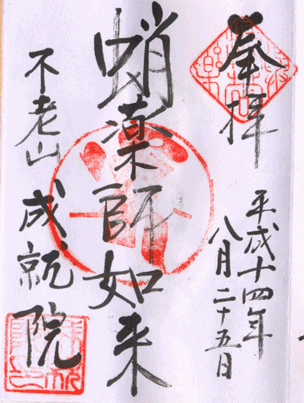 奉拝
平成十四年
八月二十五日
蛸薬師如来
不老山
成就院